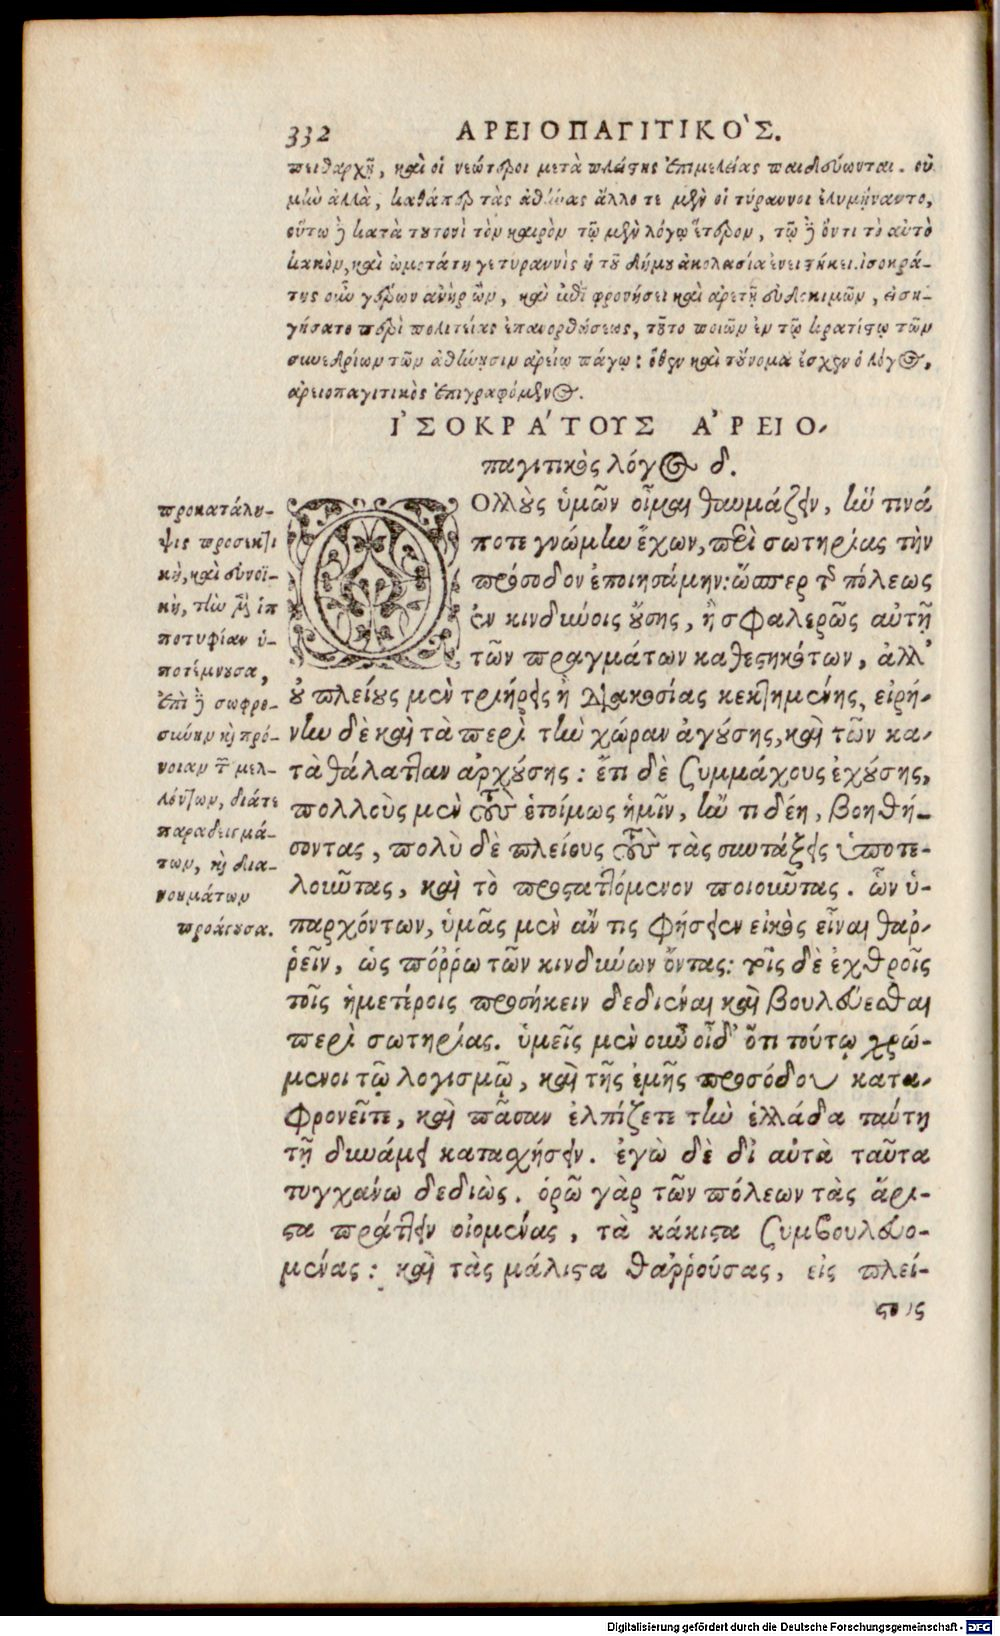 332 ΑΡΕΙΟΠΑΓΙΤΙΚΟ'Σ.
πειθαρχῇ, καὶ οἱ νεώτεροι μετὰ πλείστης ἐπιμελείας παιδεύωνται. οὐ
μὴν ἀλλὰ, καθάπερ τὰς ἀθήνας ἄλλο τε μὲν οἱ τύραννοι ἐλυμήναντο,
οὕτω δὲ κατὰ τουτονὶ τὸν καιρὸν τῷ μὲν λόγῳ ἕτερον, τῷ δὲ ὄντι τὸ αὐτὸ
κακὸν, καὶ ὠμοτάτη γε τυραννὶς ἡ τοῦ δήμου ἀκολασία ἐνειστήκει. ἰσοκρά-
της οὖν γέρων ἀνὴρ ὢν, καὶ ἐπὶ φρονήσει καὶ ἀρετῇ εὐδοκιμῶν, εἰση-
γήσατο περὶ πολιτείας ἐπανορθώσεως, τοῦτο ποιῶν ἐν τῷ κρατίστῳ τῶν
συνεδρίων τῶν ἀθήνησιν ἀρείῳ πάγῳ: ὅθεν καὶ τοὔνομα ἔσχεν ὁ λόγος,
ἀρειοπαγιτικὸς ἐπιγραφόμενος.
Ἰ'ΣΟΚΡΑ'ΤΟΥΣ Α'ΡΕΙΟ-
παγιτικὸς λόγος δ.
ΟΛΛοὺς ὑμῶν οἶμαι θαυμάζειν, ἥν τινά
ποτε γνώμην ἔχων, περὶ σωτηρίας τὴν
πρόσοδον ἐποιησάμην: ὥσπερ τῆς πόλεως
ἐν κινδύνοις οὔσης, ἢ σφαλερῶς αὐτῇ
τῶν πραγμάτων καθεστηκότων, ἀλλ'
οὐ πλείους μὲν τριήρεις ἢ διακοσίας κεκτημένης, εἰρή-
νην δὲ καὶ τὰ περὶ τὴν χώραν ἀγούσης, καὶ τῶν κα-
τὰ θάλατταν ἀρχούσης: ἔτι δὲ συμμάχους ἐχούσης,
πολλοὺς μὲν τοὺς ἑτοίμως ἡμῖν, ἤν τι δέῃ, βοηθή-
σοντας, πολὺ δὲ πλείους τοὺς τὰς συντάξεις ὑποτε-
λοῦντας, καὶ τὸ προσταττόμενον ποιοῦντας. ὧν ὑ-
παρχόντων, ὑμᾶς μὲν ἄν τις φήσειεν εἰκὸς εἶναι θαρ-
ρεῖν, ὡς πόῤῥω τῶν κινδύνων ὄντας: τοῖς δὲ ἐχθροῖς
τοῖς ἡμετέροις προσήκειν δεδιέναι καὶ βουλεύεσθαι
περὶ σωτηρίας. ὑμεῖς μὲν οὖν οἶδ' ὅτι τούτῳ χρώ-
μενοι τῷ λογισμῷ, καὶ τῆς ἐμῆς προσόδου κατα-
φρονεῖτε, καὶ πᾶσαν ἐλπίζετε τὴν ἑλλάδα ταύτῃ
τῇ δυνάμει κατασχήσειν. ἐγὼ δὲ δι' αὐτὰ ταῦτα
τυγχάνω δεδιὼς. ὁρῶ γὰρ τῶν πόλεων τὰς ἄρι-
στα πράττειν οἰομένας, τὰ κάκιστα συμβουλευο-
μένας: καὶ τὰς μάλιστα θαῤῥούσας, εἰς πλεί-
στους
προκατάλη-
ψις προσεκτι
κὴ, καὶ εὐνοϊ-
κὴ, τὴν μὲν ἐπ
ποτυφίαν ὑ-
ποτέμνουσα,
ἐπὶ δὲ σωφρο-
σύνην καὶ πρό-
νοιαν τῶν μελ-
λόντων, διά τε
παραδειγμά-
των, καὶ δια-
νοημάτων
προάγουσα.
Digitalisierung gefördert durch die Deutsche Forschungsgemeinschaft - DFG